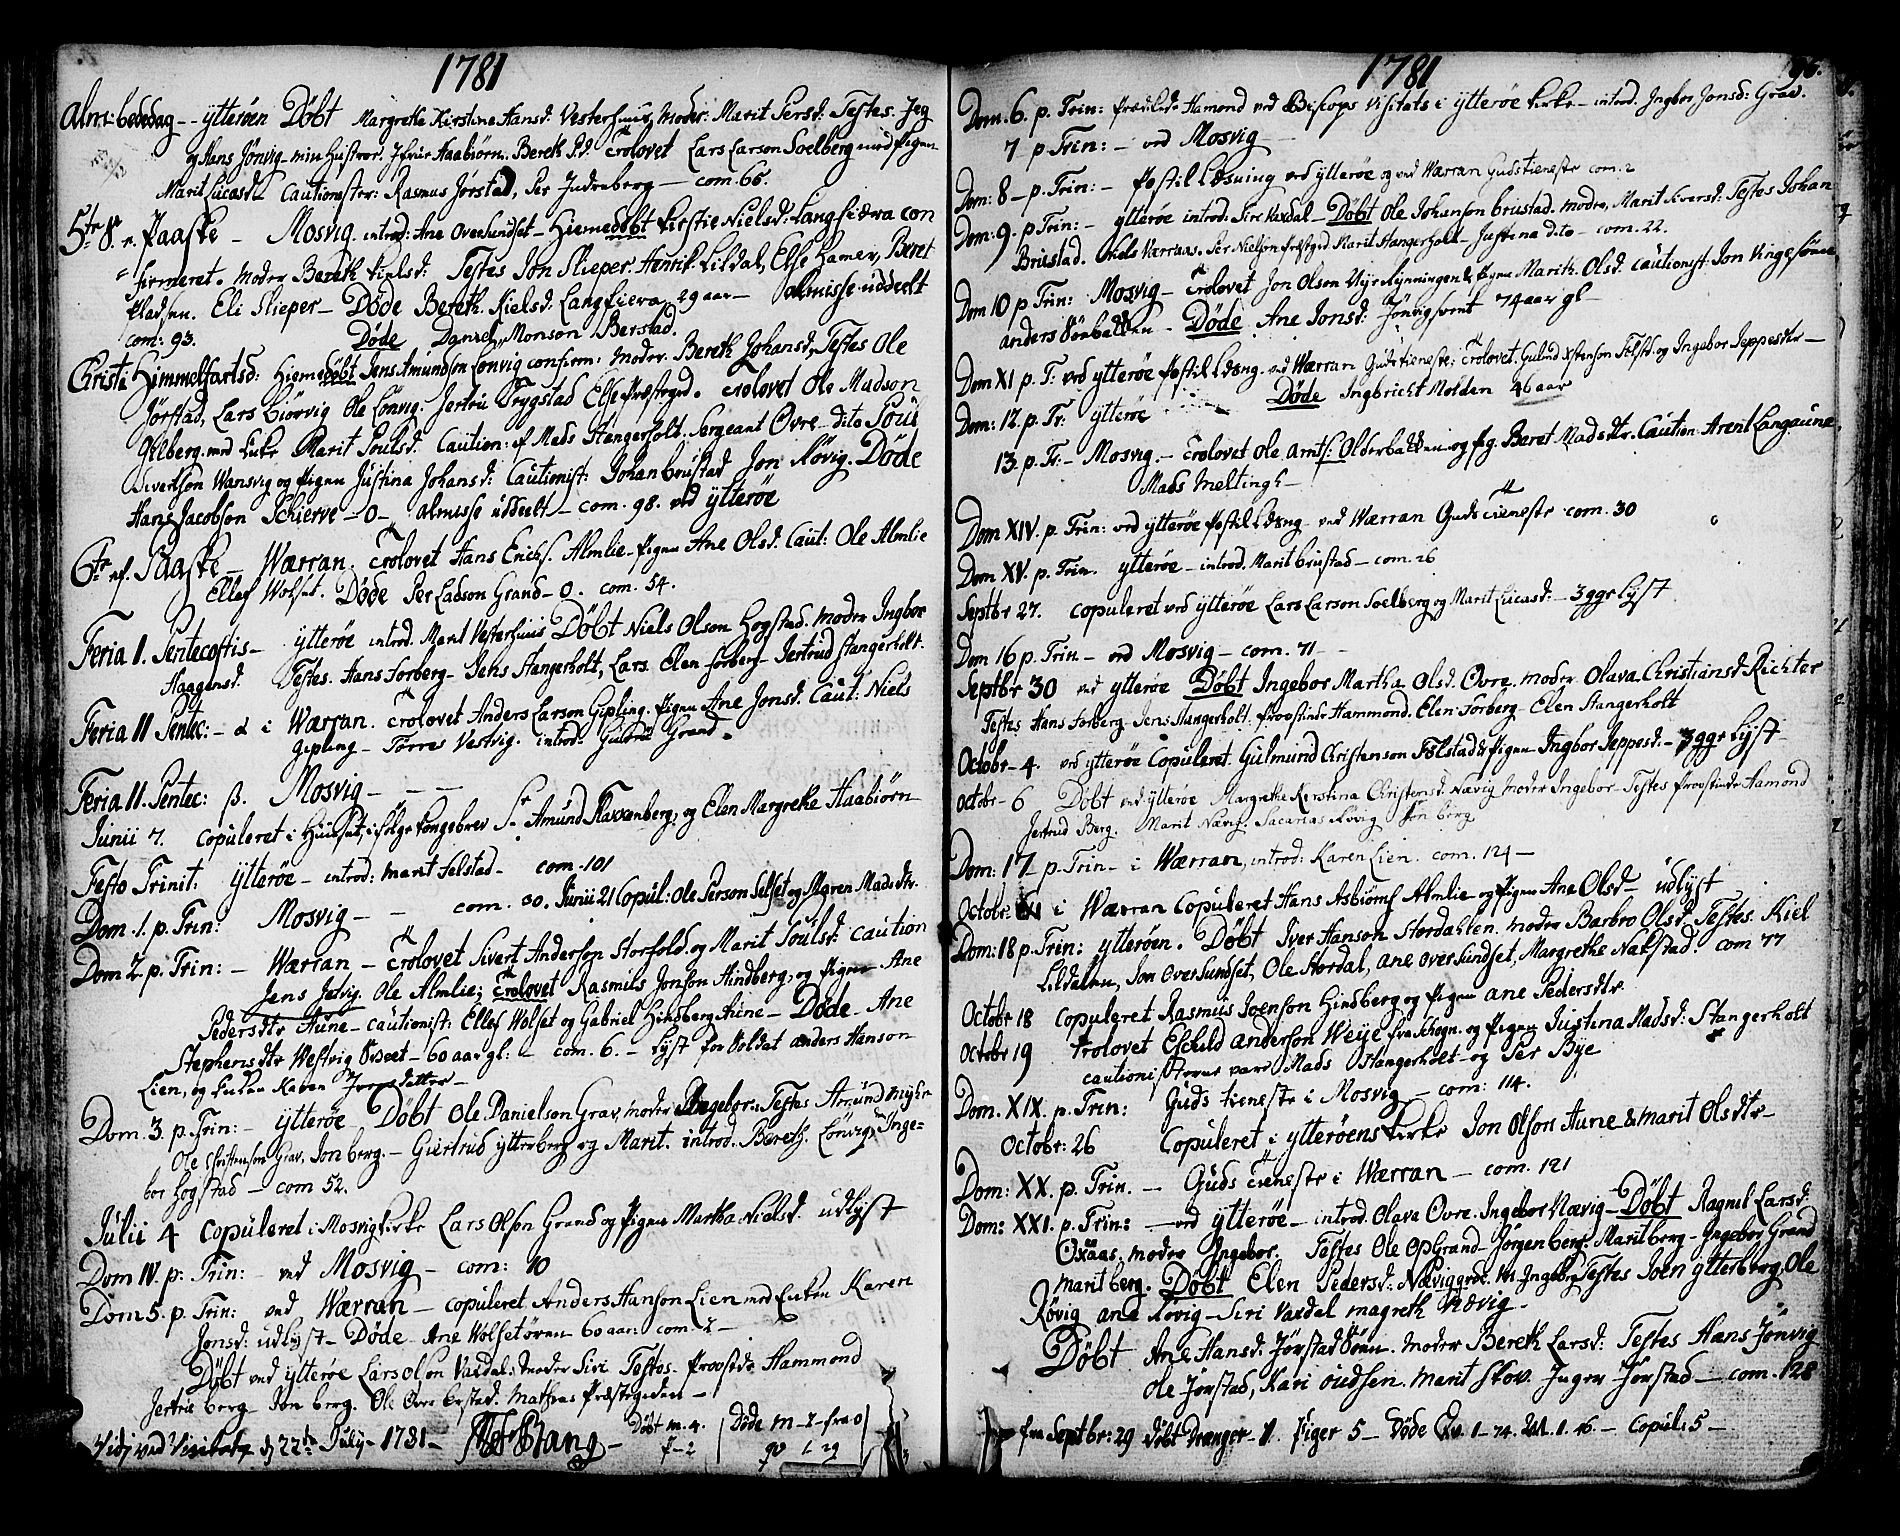 1781
Alm: bededag - ytterøen Døbt Margrethe Kirstine Hansd. Vesterhuus, Moder: Marit Persd. Testes. Jeg
og Hans Jønvig - min Hustroe. Jfrue Haabiørn. Bereth P.d. Trolovet Lars Larson Soelberg med Pigen
Marit Lucasd. Cautionister: Rasmus Jørstad, Per Inderberg - com. 66.
5te S. e. Paaske - Mosvig. introd: Ane OverSundset - Hiemedøbt Kirstie Nielsd: Langlieva con
firmeret. Moder Bereth Kielsd: Testes Jon Slieper. Henrik Lildal, Else Hamer, Beret
Pladsen. Eli Slieper - Døde Bereth Kielsd. Langlieva 29 aar - almisse uddeelt
com: 93. Døde Daniel Monson Berstad.
Christi Himmelfartsd: Hiemedøbt Jens Amundsen Lønvig confirm: moder. Bereth Johansd. Testes Ole
Jørstad, Lars Liørvig Ole Lønvig. Jertru Trygstad Else Præstegrd. Trolovet Ole Madson
Gilberg med Enke Marit Poulsd. Caution: af Mads Stangerholt. Sergeant Øvre - dito Poul
Sivertson Wansvig og Pigen Justina Johansd: Cautionist: Johan brustad Jon Røvig. Døde
Hans Jacobson Schierve - 0 - almisse uddeelt - com. 98. ved ytterøe
6te ef. Paaske - Wærran. Trolovet Hans Erichs. Almlie - Pigen Ane Olsd. Caut: Ole Almlie
Ellef Wolset. Døde Per Ladson Grand - 0. com. 54.
Feria I. Pentecostis - ytterøe introd. Marit Vesterhuus Døbt Niels Olson Hogstad. moder Ingbor
Haagensd. Testes. Hans Forberg - Jens Stangerholt, Lars. Elen forberg - Jertrud Stangerholt.
Feria II Pentec: - α i Wærran. Trolovet Anders Larson Gipling. Pigen Ane Jonsd. Caut: Niels
Gipling - Torres Vestvig. introd. Guldru Grand.
Feria II. Pentec: β. Mosvig -
Junii 7. Copuleret i Huuset, i følge kongebrev Sr Amund Flaxenberg, og Elen Margrethe Haabiørn
Festo Trinit: ytterøe - introd: marit Felstad - com. 101
Dom. 1. p. Trin: Mosvig - - com. 30. Junii 21 Copul: Ole Person Selset og Maren Madsdtr.
Dom 2. p. Trin: - Wærran - Trolovet Sivert Anderson Storfold og Marit Poulsd: Caution
Jens Jedvig. Ole Almlie; Trolovet Rasmus Jonson Hindberg, og Pigen Ane
Pedersdtr Aune - cautionist: Ellef Wolset og Gabriel Hindberg Aune - Døde - Ane
Stephensdtr Westvig - 60 aar gl: - com. 6. - Lyst for Soldat anders Hanson
Lien, og Enken Karen
Dom. 3. p. Trin: - ytterøe Døbt Ole Danielson Grav, moder Ingebor. Testes Amund myhr
Ole Christenson Grav. Jon berg. - Giertrud ytterberg og Marit. introd. Bereth Lønvig, Inge-
bor Hogstad - com 52.
Julii 4 Copuleret i Mosvig Kirke Lars Olson Grand og Pigen Martha Nielsd. udlyst
Dom IV. p: Trin: - ved Mosvig - com: 10
Dom 5. p. Trin: ved Wærran - copuleret Anders Hanson Lien med Enken Karen
Jonsd: udlyst - Døde - Ane Wolsetøren 60 aar: com. 2 -
Døbt ved ytterøe Lars olson Vardal: moder Siri Testes. Provstde Hammond
Jertru berg - Jon berg. Ole Øvre brustad. Mathias Præstegaden -
Vidi ved Visitatz d 22de July - 1781 - Bang - Døbt m. 4. f - 2 Døde m - 2 - fra 0 qv 29
1781
Dom. 6. p. Trin: Prædiked. Hamond ved Biskops Visitats i ytterøe Kirke - introd. Ingbor Jonsd: Grav.
7 p Trin: - ved Mosvig -
Dom: 8 - p. Trin: - Postil Læsning ved ytterøe og ved Wærran Gudstieneste com. 2
Dom: 9. p Trin: - ytterøe introd. Siri Vardal - Døbt Ole Johanson brustad. modr, Marit Siversd: Testes Johan
Brustad. Per Nielson præstgrd Marit Stangerholt - Justina dito - com. 22.
Dom 10 p. Trin: Mosvig - Trolovet Jon Olson & Pigen Marith. Olsd. Cautionist: Jon
anders - Døde. Ane Jonsd: Jønvigsvent 74 aar gl -
Dom XI p. T: ved ytterøe Postil Læsng. ved Wærran Gudstieneste; Trolovet Gulmd Xstenson Felstad og Ingebor Jeppesdtr -
Dom: 12. p. Tr: ytterøe Døde Ingbricht Molden 46 aar
13. p. Tr: - Mosvig. - Trolovet Ole Arnts: Olderbakken og Pig. Beret Madsdtr. Caution: Arent Langaune
Mads Meltingh -
Dom XIV. p. Trin: ved ytterøe Postil Læsng - ved Wærran Gudstieneste com. 30
Dom XV. p. Trin. ytterøe - introd. Marit brustad - com. 26
Septbr 27. copuleret ved ytterøe Lars Larson Soelberg og Marit Lucasd: - 3 ggr Lyst
Dom 16 p. Trin - ved Mosvig - com. 71 -
Septbr 30 ved ytterøe Døbt Ingebor Martha Olsd. Øvre. moder Olava Christiansd. Richter
Testes Hans Forberg. Jens Stangerholt. Provstinde Hammond. Elen Forberg - Elen Stangerholt
Octobr - 4. ved ytterøe Copuleret. Gulmund Christenson Følstad & Pigen Ingbor Jeppesd: - 3 ggr Lyst
Octobr - 6 Døbt ved ytterøe Margrethe Kerstina Christensd. Nævig moder Ingebor - Testes Provstinde Hamond
Jertrud Berg. Marit Nævig. Sacarias Røvig Jon berg
Dom: 17 p. Trin - i Wærran, introd: Karen Lien. com. 124 -
Octobr: XI i Wærran Copuleret Hans Asbiørns Almlie og Pigen Ane Olsd - udlyst
Dom: 18 p. Trin: ytterøen. Døbt Iver Hanson Stordahlen. moder Barbro Olsd. Testes. Kiel
Lildalen, Jon OverSundset, Ole Stordal, Ane Over Sundset, Margrethe Nakstad. com 77
Octobr 18 Copuleret Rasmus Joenson Hindberg og Pigen Ane Pedersdtr
Octobr 19 Trolovet Eschild Anderson Weye fra Schogn. og Pigen Justina Madsd: Stangerholt
cautionisterne vare Mads Stangerholt - og Per Bye
Dom. XIX. p. Trin: Guds tieneste i Mosvig - com: 114.
Octobr: 26 Copuleret i ytterøens Kirke Jon Olsons Aune & Marit Olsdtr -
Dom: XX. p. Trin. - Gudstieneste i Wærran - com. 121
Dom: XXI. p. Trin: - ved ytterøe - introd. Olava Øvre. Ingebor Nævig - Døbt Ragnil Larsd.
Oxaas, moder Ingebor. Testes Ole OpGrand - Jørgen berg. Marit berg - Ingebor Grand
marit berg. Døbt Elen Pedersd: Næviggrde. M. Ingebor Testes Joen ytterberg, Ole
Røvig and Røvig - Siri Vardal magreth Nævig -
Døbt Ane Hansd. Jørstad Søen. moder Bereth Larsd: Testes Hans Jønvig
Ole Jørstad, Kari oudsen. Marit Skov. Inger Jørstad - com. 128
fra Septbr: 29 døbt Drenger - 1. Piger 5 - Døde Qv. 1 - 74. M. 1. 46. - Copul: 5 -